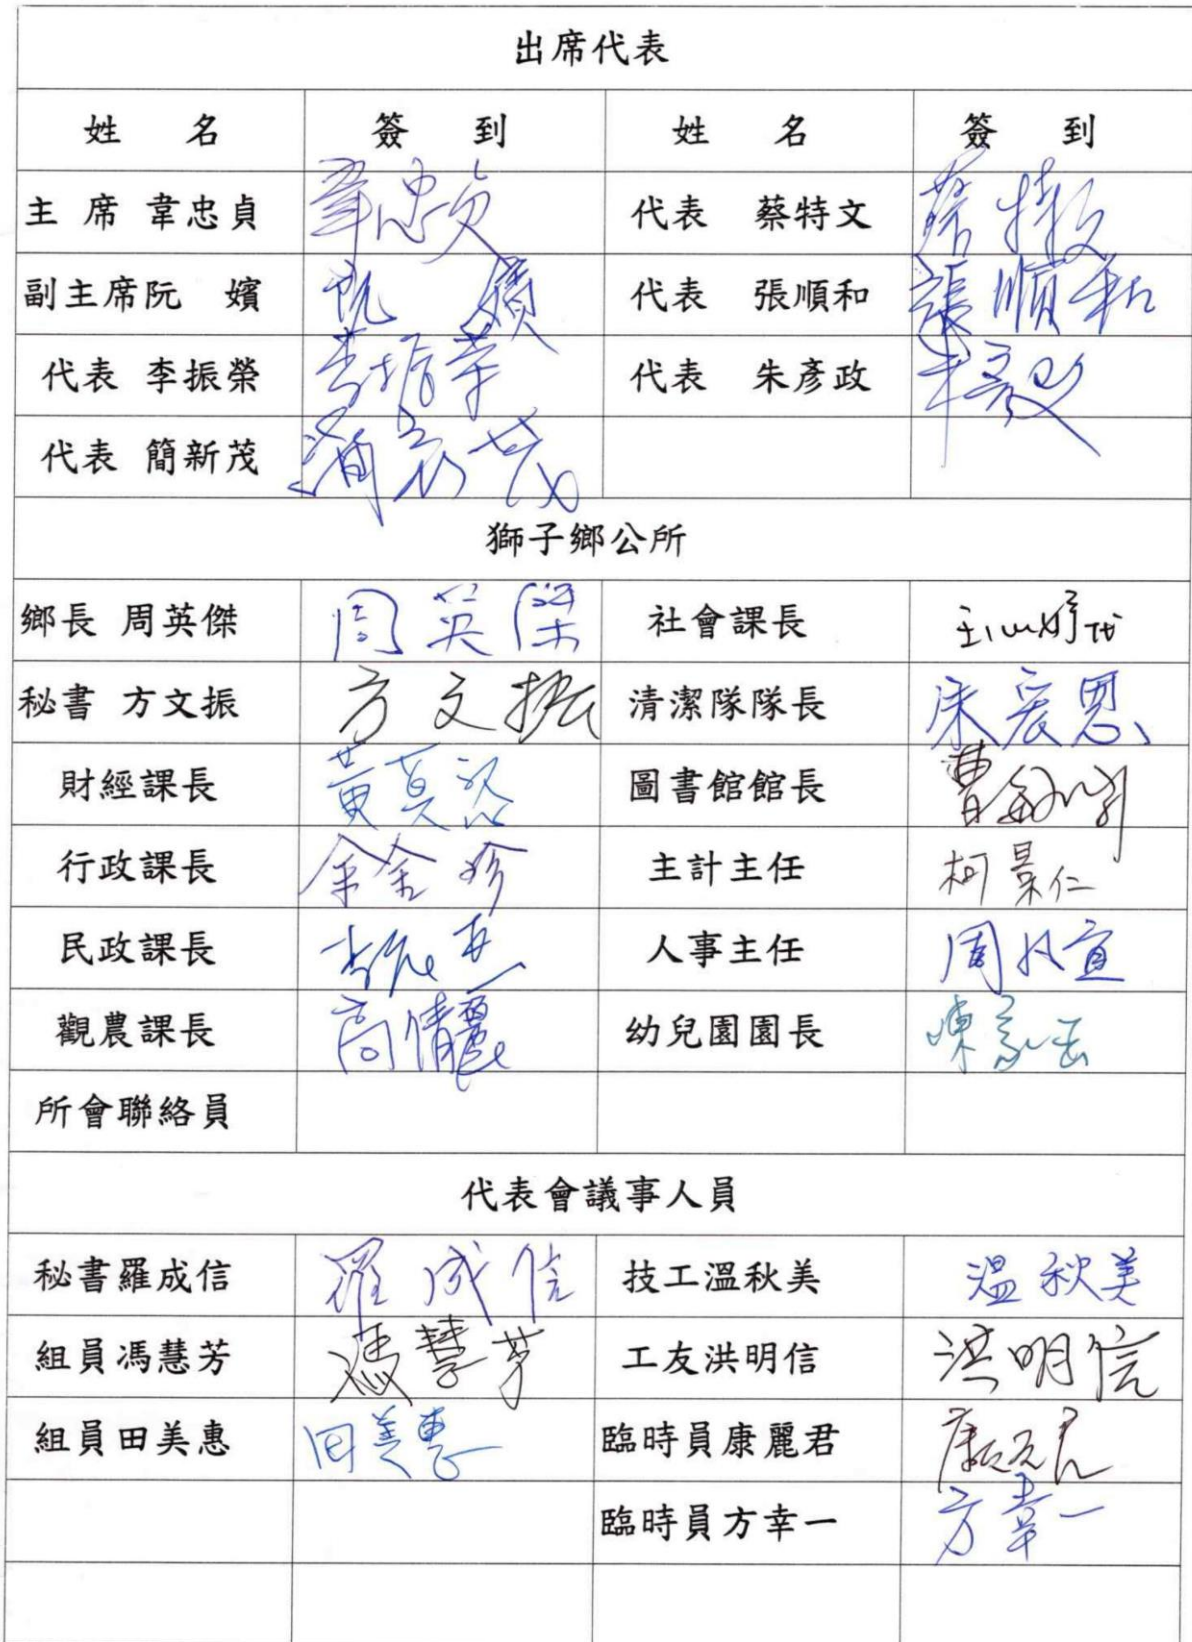 出席代表
姓 名 簽 到 姓 名 簽 到
主 席 韋忠貞 韋忠貞 代表 蔡特文 蔡特文
副主席阮 嬪 阮 嬪 代表 張順和 張順和
代表 李振榮 李振荣 代表 朱彥政 朱彥政
代表 簡新茂 簡新茂
獅子鄉公所
鄉長 周英傑 周英傑 社會課長
秘書 方文振 方文振 清潔隊隊長 宋宸恩
財經課長 圖書館館長
行政課長 余金珍 主計主任 柯景仁
民政課長 人事主任
觀農課長 高倩麗 幼兒園園長
所會聯絡員
代表會議事人員
秘書羅成信 羅成信 技工溫秋美 溫秋美
組員馮慧芳 馮慧芳 工友洪明信 洪明信
組員田美惠 田美惠 臨時員康麗君 康麗君
臨時員方幸一 方幸一